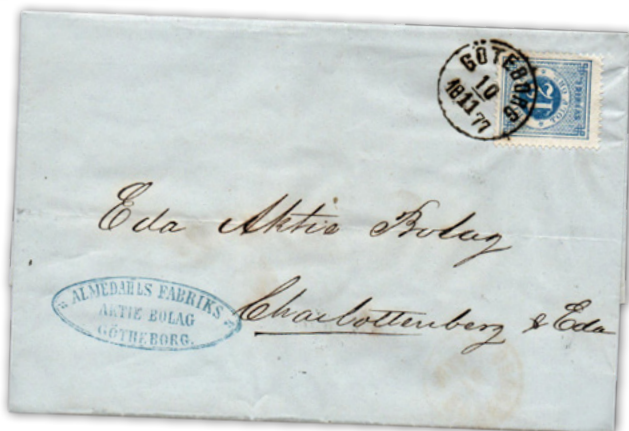 GÖTEBORG
10
11
18 77
12
TOLF ÖRE
Eda Aktie Bolag
Charlottenberg & Eda
ALMEDAHLS FABRIKS
AKTIE BOLAG
GÖTHEBORG.